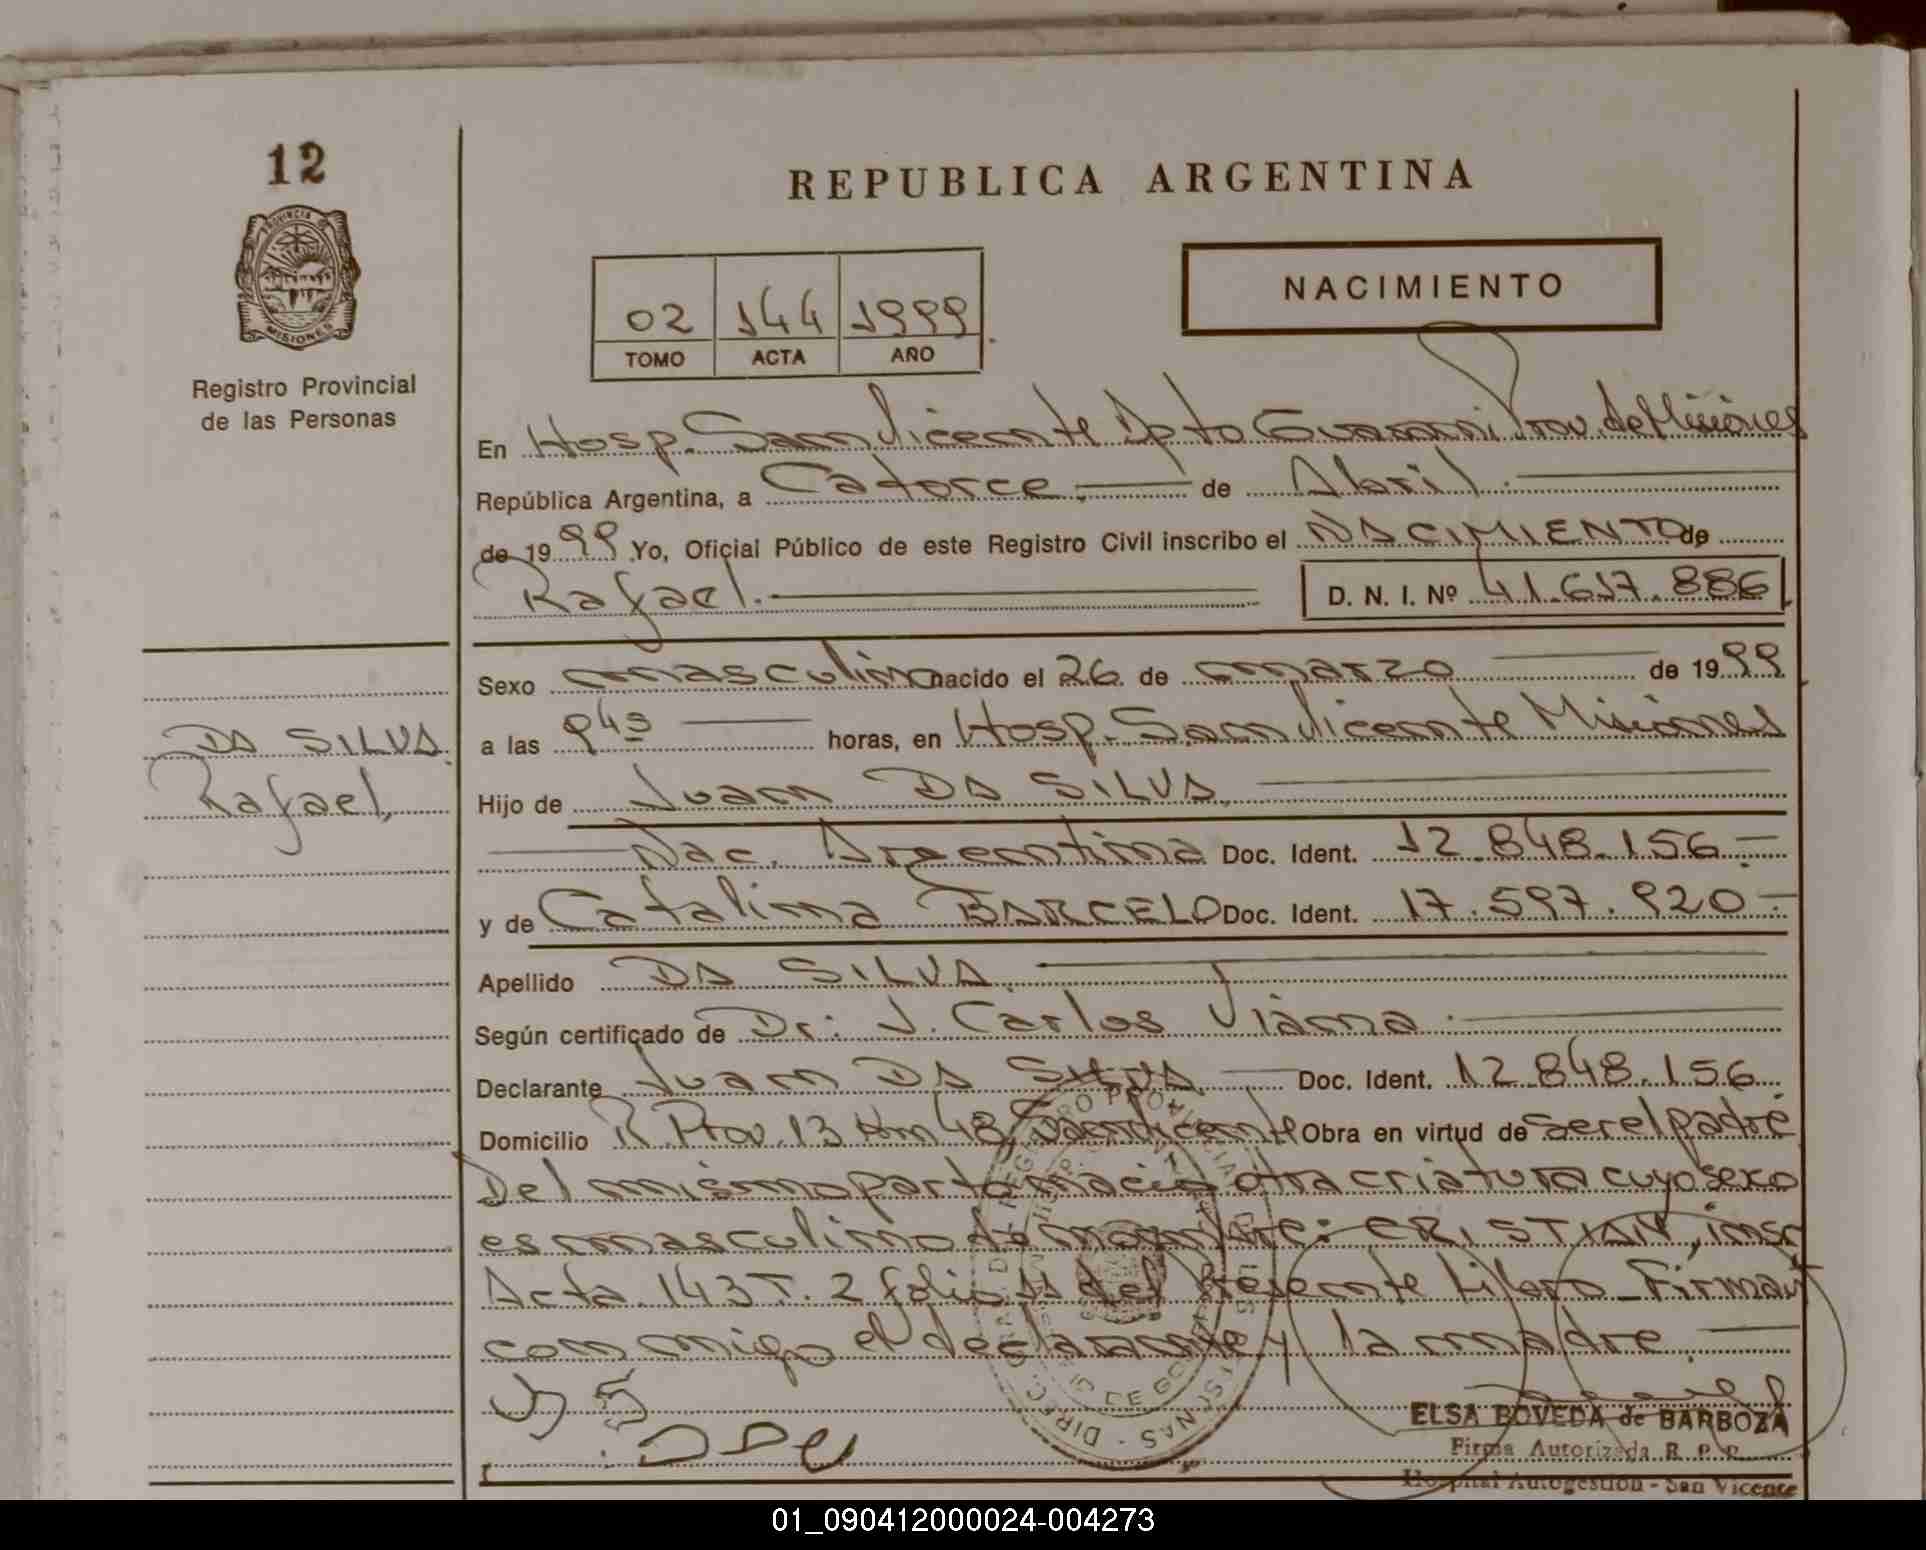 12
REPUBLICA ARGENTINA
PROVINCIA DE
MISIONES
Registro Provincial
de las Personas
02 144 1999
TOMO ACTA AÑO
NACIMIENTO
En Hosp. San Vicente Dpto Guarani Prov. de Misiones
República Argentina, a Catorce. de Abril.
de 1999 Yo, Oficial Público de este Registro Civil inscribo el NACIMIENTO de
Rafael. D. N. I. Nº 41.617.886
Sexo masculino nacido el 26 de marzo de 1999
a las 9 45 horas, en Hosp. San Vicente Misiones
DA SILVA.
Rafael,
Hijo de Juan DA SILVA
Nac. Argentina Doc. Ident. 12.848.156.-
y de Catalina BARCELO Doc. Ident. 17.597.920.-
Apellido DA SILVA.
Según certificado de Dr: J. Carlos Viana.
Declarante Juan DA SILVA Doc. Ident. 12.848.156
Domicilio R. Prov. 13 Km 48 San Vicente Obra en virtud de ser el padre
Del mismo parto nació otra criatura cuyo sexo
es masculino de nombre: CRISTIAN, insc
Acta 143 T. 2 folio 11 del Presente Libro_Firman
conmigo el declarante y la madre.
ELSA BOVEDA de BARBOZA
Firma Autorizada R. P. P.
Hospital Autogestión - San Vicente
01_090412000024-004273